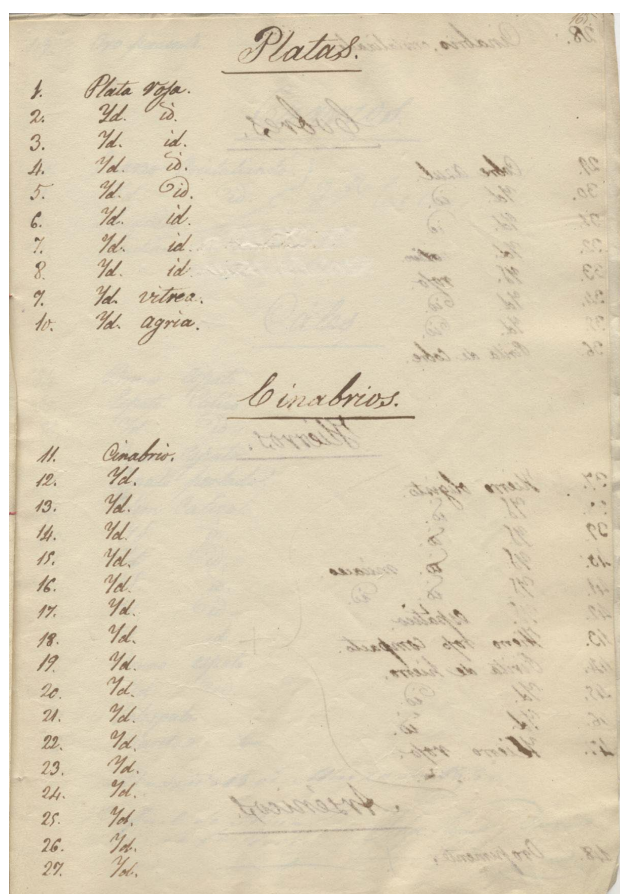 Platas.
1. Plata roja.
2. Yd. id.
3. Yd. id.
4. Yd. id.
5. Yd. id.
6. Yd. id.
7. Yd. id.
8. Yd. id.
9. Yd. vitrea.
10. Yd. agria.
Cinabrios.
11. Cinabrio.
12. Yd.
13. Yd.
14. Yd.
15. Yd.
16. Yd.
17. Yd.
18. Yd.
19. Yd.
20. Yd.
21. Yd.
22. Yd.
23. Yd.
24. Yd.
25. Yd.
26. Yd.
27. Yd.